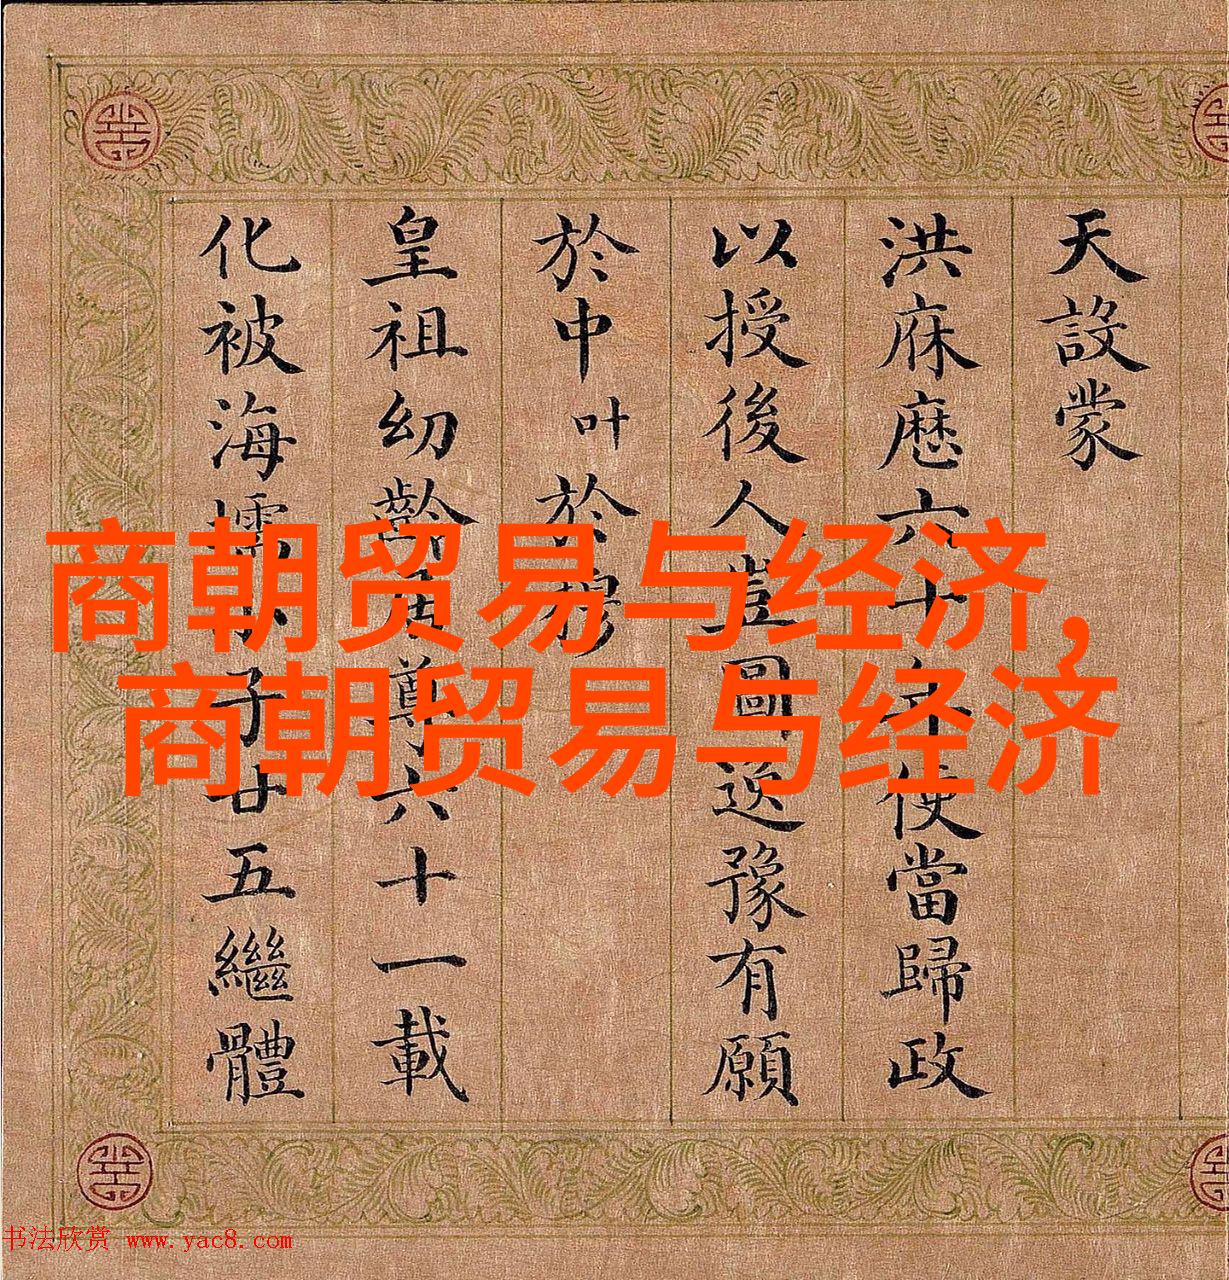 天設蒙
洪庥歷六十年使當歸政
以授後人豈圖逸豫有願
於中叶於穆
皇祖幼齡居尊六十一載
化被海壖小子廿五繼體
商朝贸易与经济,
商朝贸易与经济
书法欣赏 www.yac8.com